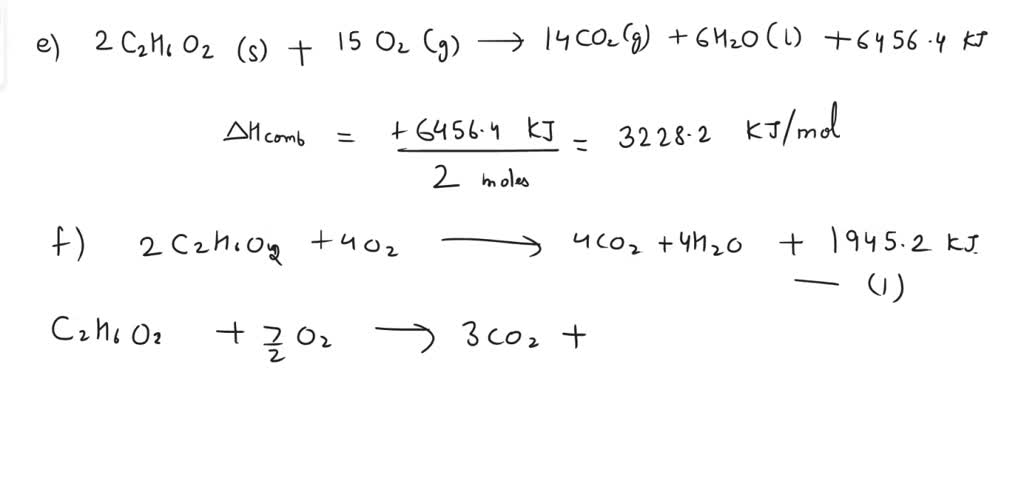 e) 2 C₂H₆O₂ (s) + 15 O₂ (g) → 14CO₂(g) + 6H₂O(l) + 6456.4 KJ
ΔHcomb = +6456.4 KJ / 2 moles = 3228.2 KJ/mol
f) 2C₂H₆O₂ + 4O₂ → 4CO₂ + 4H₂O + 1945.2 KJ
— (1)
C₂H₆O₂ + 7/2 O₂ → 3CO₂ +